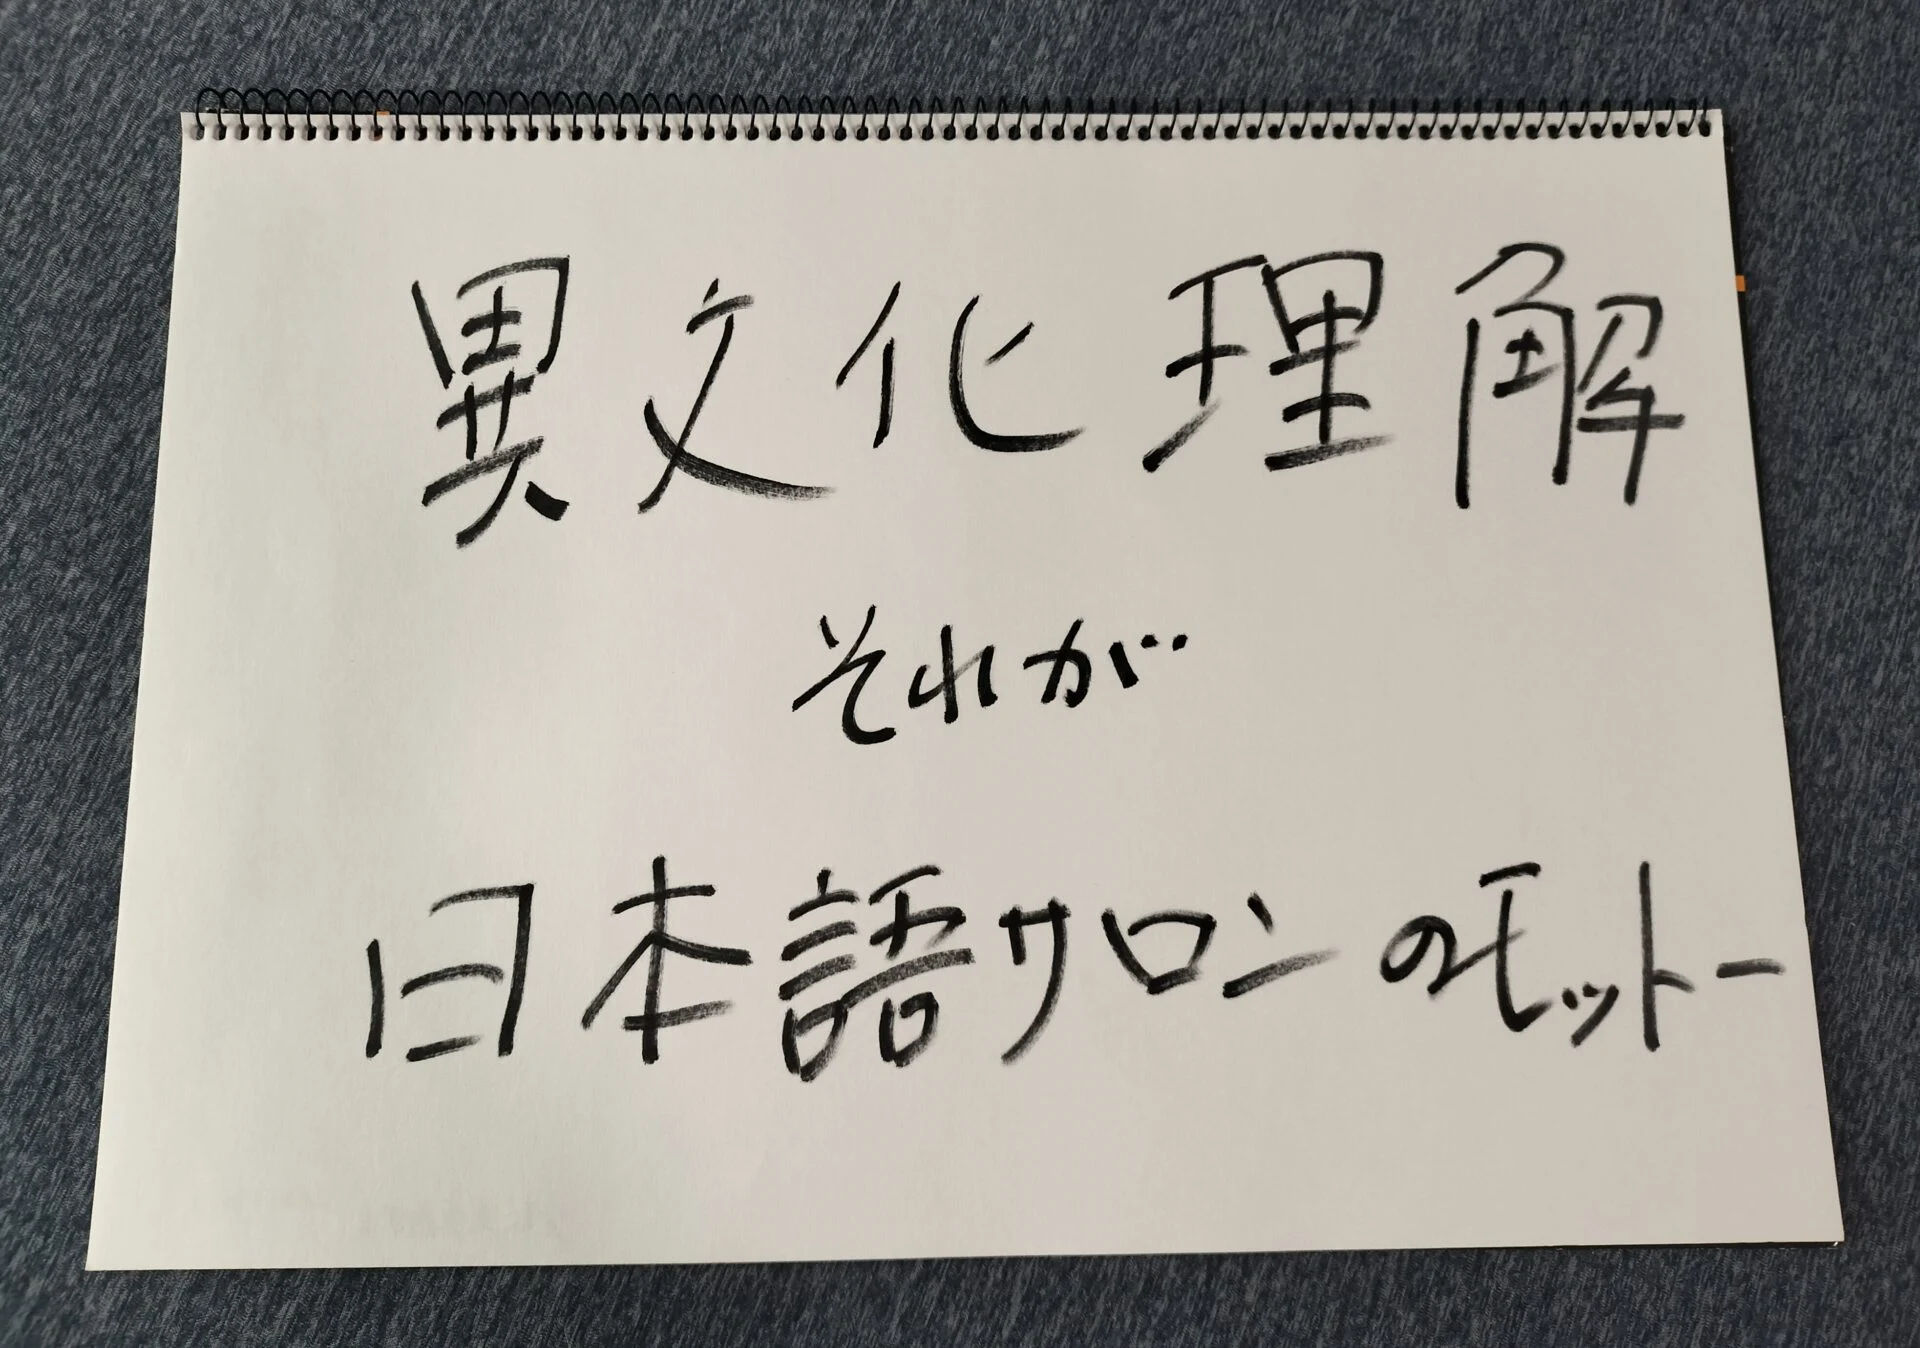 異文化理解
それが
日本語サロンのモットー